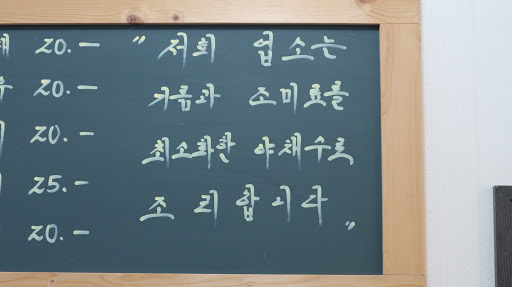 20.–
20.–
20.–
25.–
20.–
" 저희 업소는
기름과 조미료를
최소화한 야채수로
조리합니다 "